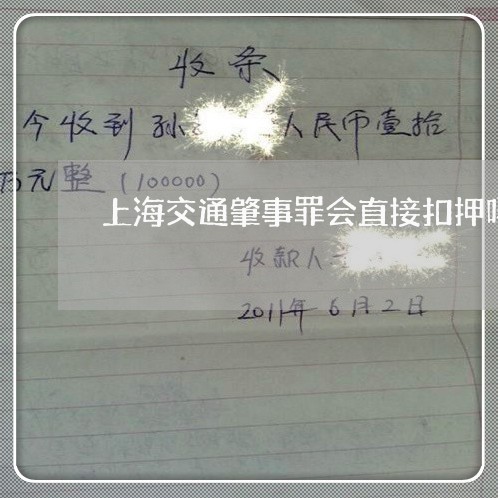 收条
今收到孙 人民币壹拾
万元整(100000)
上海交通肇事罪会直接扣押
收款人
2011年6月2日